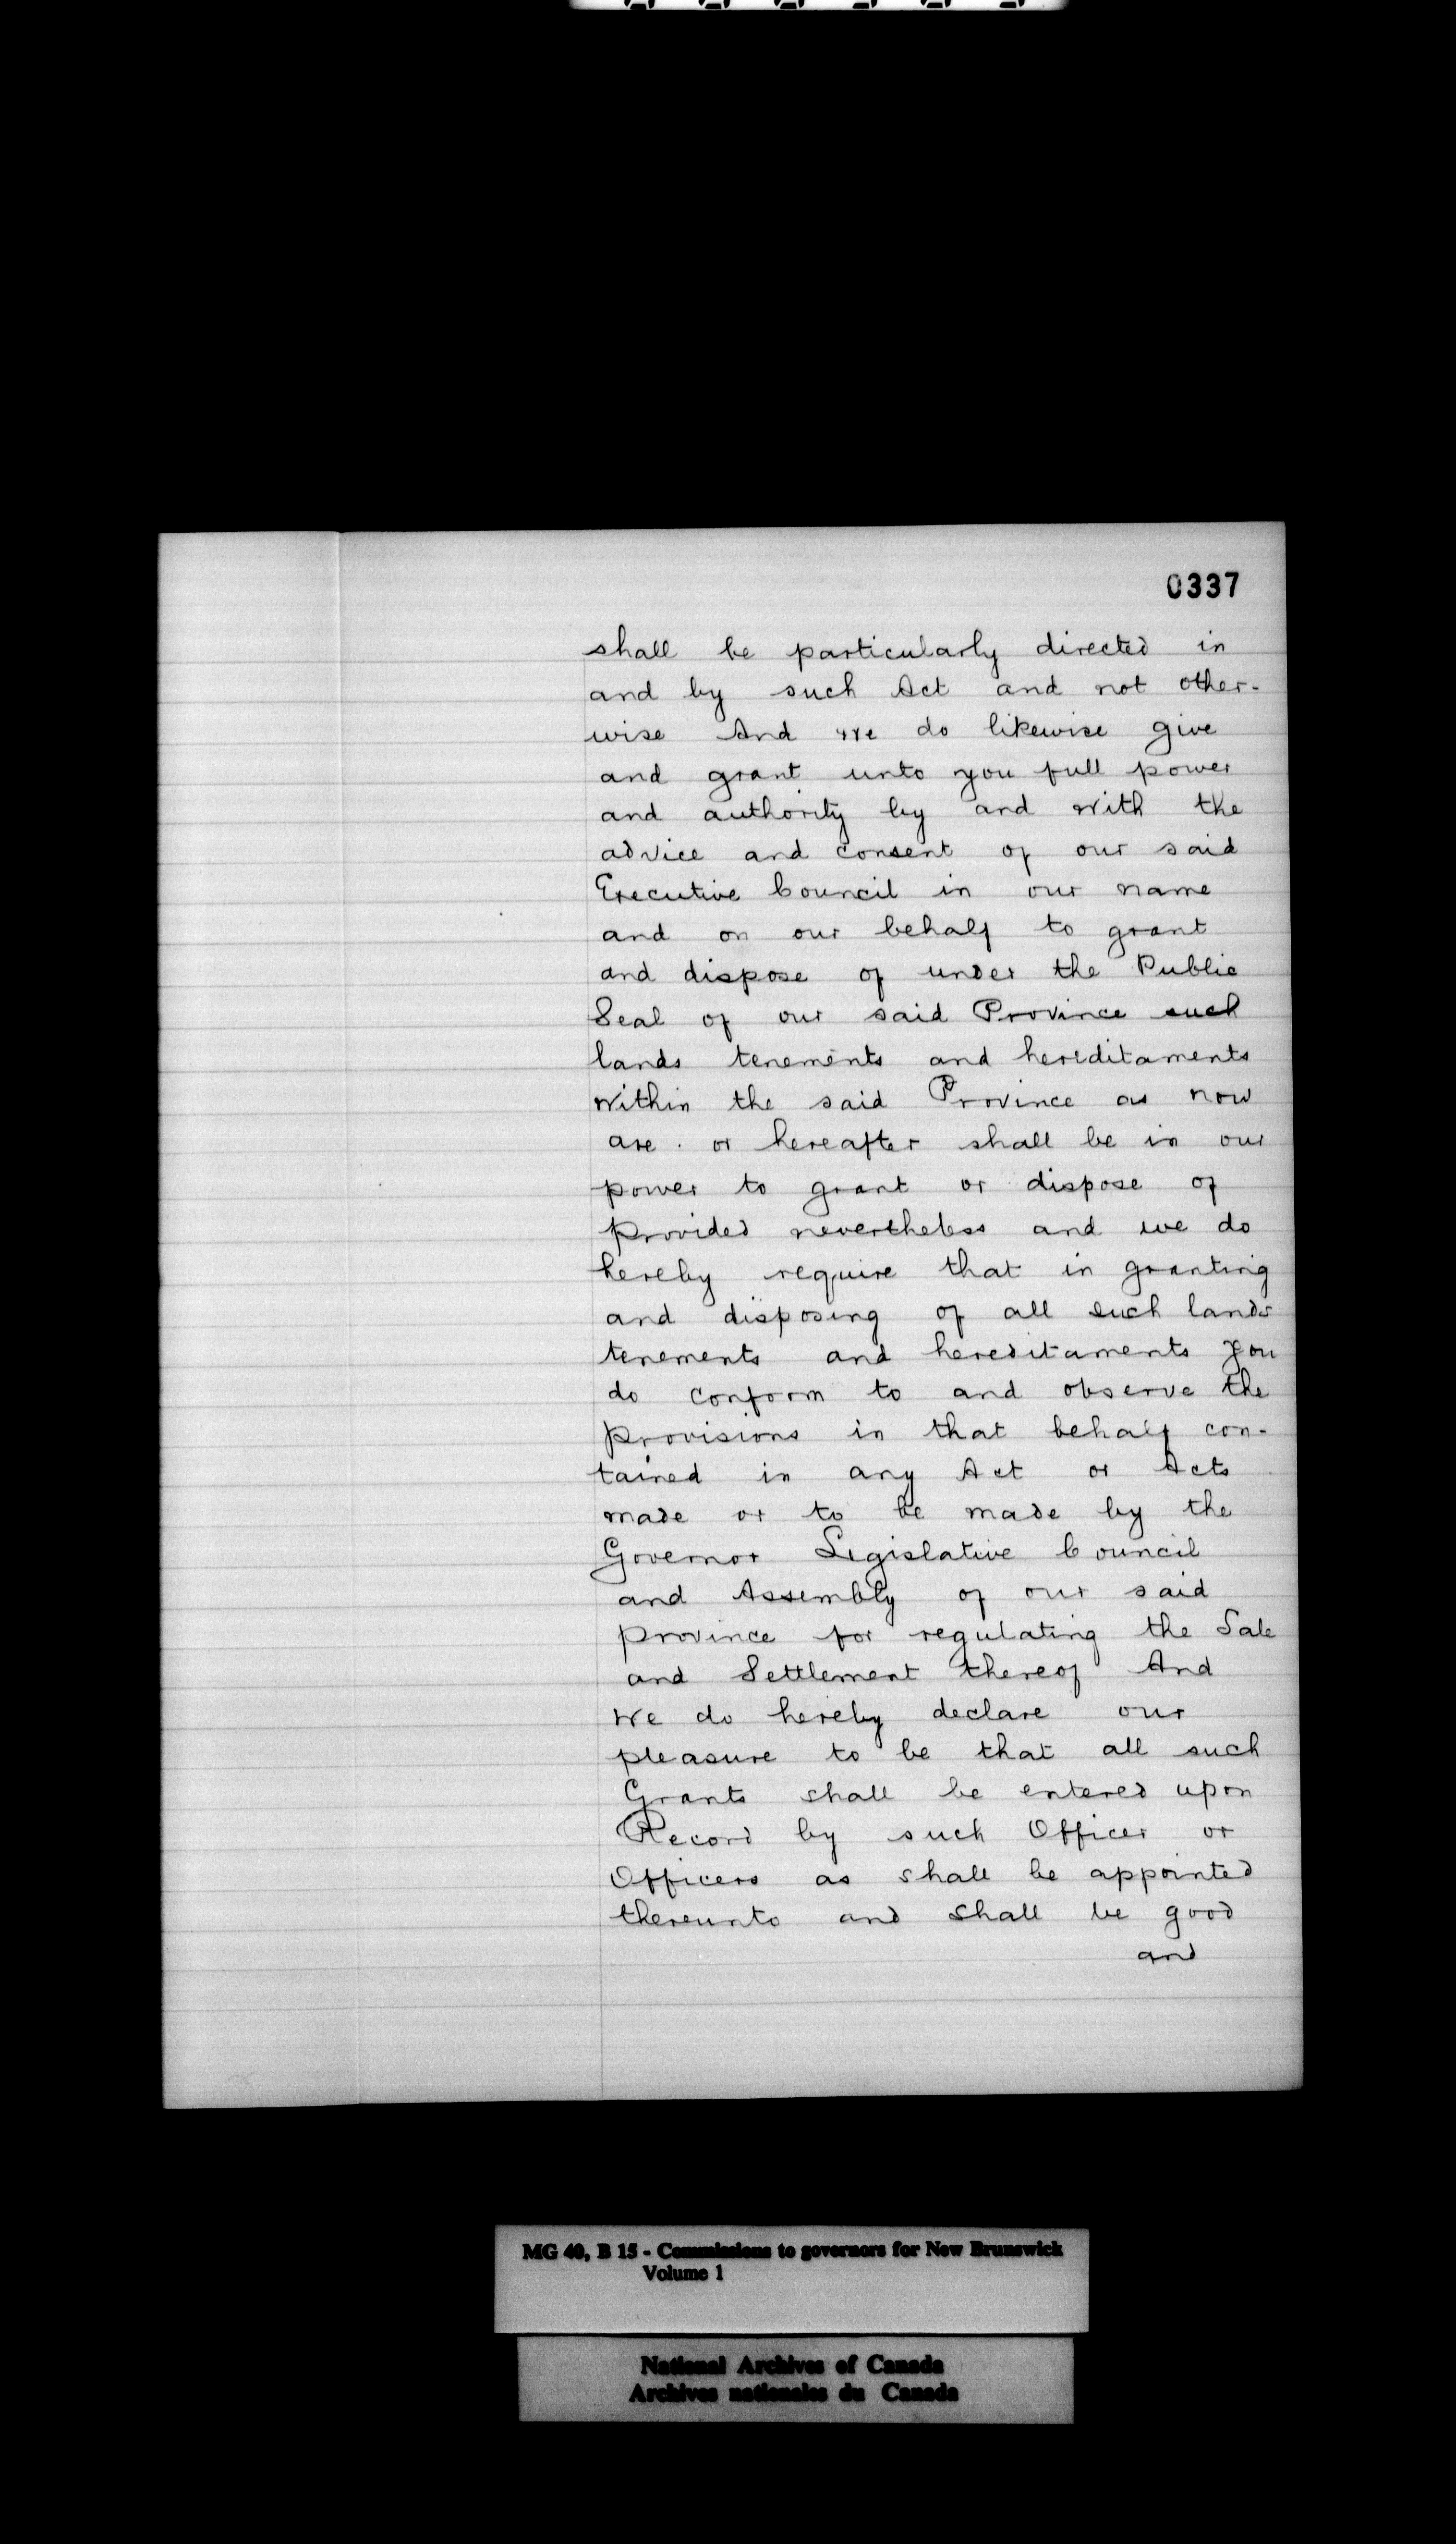 0337
shall be particularly directed in
and by such Act and not other-
wise And We do likewise give
and grant unto you full power
and authority by and with the
advice and consent of our said
Executive Council in our name
and on our behalf to grant
and dispose of under the Public
Seal of our said Province such
lands tenements and hereditaments
within the said Province as now
are . or hereafter shall be in our
power to grant or dispose of
provided nevertheless and we do
hereby require that in granting
and disposing of all such lands
tenements and hereditaments you
do conform to and observe the
provisions in that behalf con-
tained in any Act or Acts
made or to be made by the
Governor Legislative Council
and Assembly of our said
Province for regulating the Sale
and Settlement thereof And
We do hereby declare our
pleasure to be that all such
Grants shall be entered upon
Record by such Officer or
Officers as shall be appointed
thereunto and shall be good
and
MG 40, B 15 - Commissions to governors for New Brunswick
Volume 1
National Archives of Canada
Archives nationales du Canada